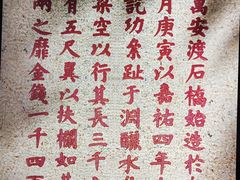 萬安渡石橋始造於
月庚寅以嘉祐四年
訖功絫趾于淵釃水
梁空以行其長三千
有五尺翼以扶欄如其
兩之靡金錢一千四百